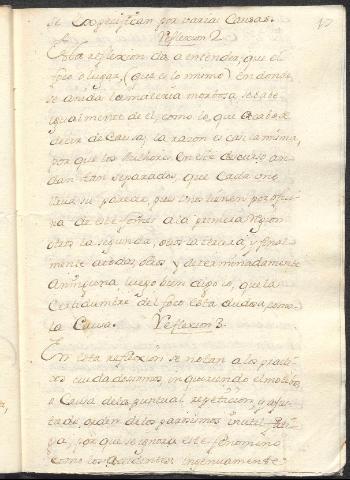 se Expecifican por varias Causas.
17
Reflexion 2.
Esta reflexion da a entender, que el
foco o lugar, (que es lo mismo) en donde
se anida la materia morbosa, se sabe
igualmente de el, como lo que acabo de
decir de Causa, la razon es casi la misma,
por que los Authores en este discurso an
dan tan separados, que cada uno
lleva su parecer, pues unos tienen por ofici
na de este fomes a la primera Region
otros la segunda, otros la tercera, y final
mente a todas, otros y determinadamente
a ninguna luego bien digo io, que la
Certidumbre del foco esta dudosa, como
la Causa. Reflexion 3.
En esta reflexion se notan a los practi
cos cuidadosimos, inquiriendo el motivo,
o Causa de la puntual repeticion, y
tado, orden de los parasismos
por que se ignora este fenomeno
como los accidentes ingenuamente